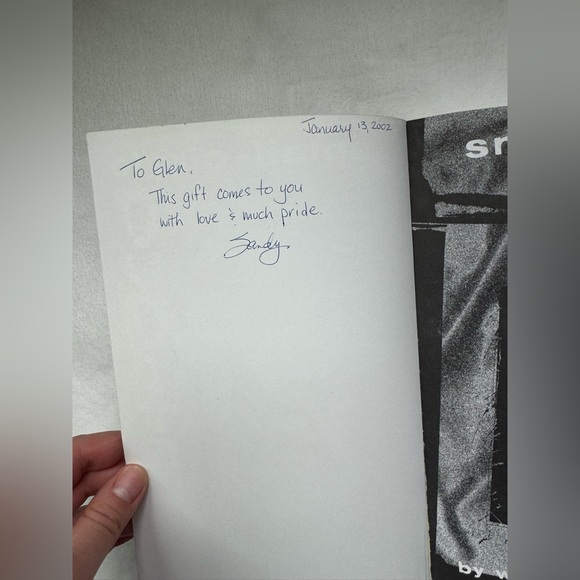 January 13, 2002
To Glen,
This gift comes to you
with love & much pride.
Sandy
by